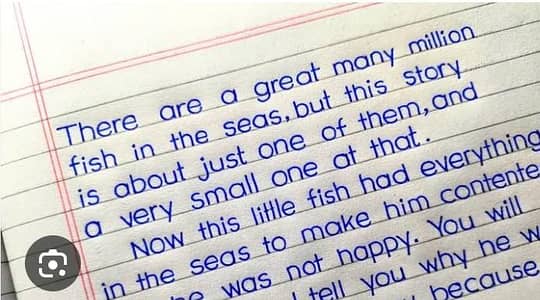 There are a great many million
fish in the seas, but this story
is about just one of them, and
a very small one at that.
Now this little fish had everything
in the seas to make him contente
he was not happy. You will
tell you why he w
because